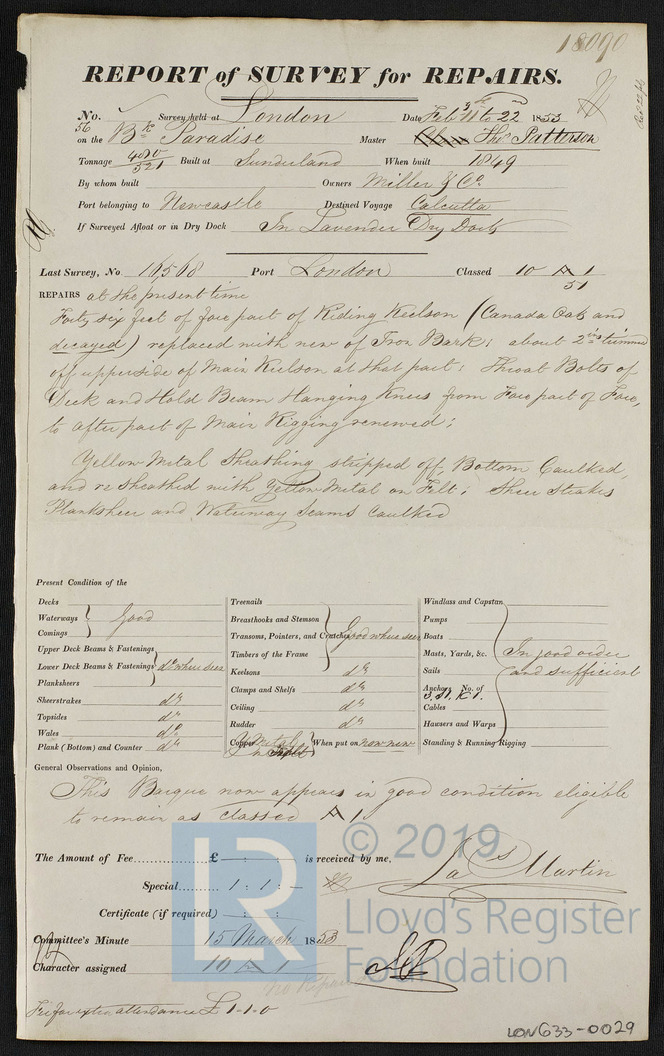 18090
REPORT of SURVEY for REPAIRS.
No. 56 Survey held at London Date Feb 3rd 11 to 22 1853
on the Bk Paradise Master Thos Patterson
Tonnage 400/521 Built at Sunderland When built 1849
By whom built Owners Miller & Co.
Port belonging to Newcastle Destined Voyage Calcutta
If Surveyed Afloat or in Dry Dock In Lavender Dry Dock
Last Survey, No. 16568 Port London Classed 10 A 1
51
REPAIRS at the present time
Forty six feet of fore part of Riding Keelson (Canada Oak and
decayed) replaced with new of Iron Bark; about 2 ins trimmed
off upperside of Main Keelson at that part; Throat Bolts of
Deck and Hold Beam Hanging Knees from Fore part of Fore,
to after part of Main Rigging renewed;
Yellow Metal Sheathing stripped off, Bottom Caulked,
and re sheathed with Yellow Metal on Felt; Sheer Strakes
Planksheer and Waterway Seams Caulked
Present Condition of the
Decks
Waterways } Good
Comings
Upper Deck Beams & Fastenings
Lower Deck Beams & Fastenings } do where seen
Planksheers
Sheerstrakes do
Topsides do
Wales do
Plank (Bottom) and Counter do
Treenails
Breasthooks and Stemson
Transoms, Pointers, and Crutches } Good where seen
Timbers of the Frame
Keelsons do
Clamps and Shelfs do
Ceiling do
Rudder do
Copper Y Metal on Felt } When put on now new
Windlass and Capstan
Pumps
Boats
Masts, Yards, &c. In good order
Sails and sufficient
Anchors No. of
Cables
Hawsers and Warps
Standing & Running Rigging
General Observations and Opinion,
This Barque now appears in good condition eligible
to remain as classed A 1.
The Amount of Fee £ – : – : – is received by me,
Special 1 : 1 : – Jas Martin
Certificate (if required) – : – : –
Committee's Minute 15 March 1853
Character assigned 10 A 1
no Repairs
Fee for extra attendance £ 1-1-0
LR
© 2019
Lloyd's Register
Foundation
LON633-0029